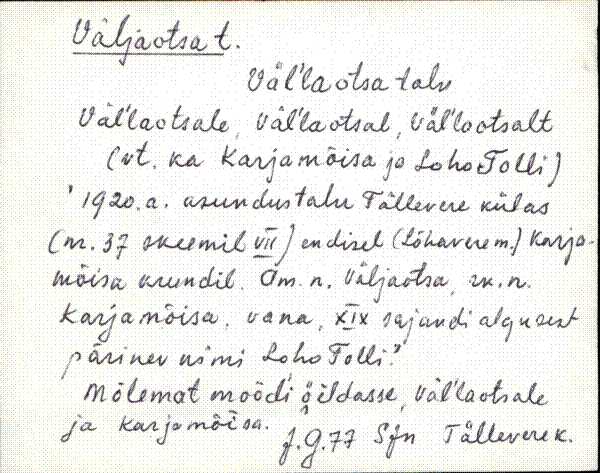 Väljaotsa t.
Väl'laotsa talu
Väl'laotsale, Väl'laotsal, Väl'laotsalt
(vt. ka Karjamõisa ja Loho Tolli)
"1920.a. asundustalu Tällevere külas
(nr. 37 skeemil VII) endisel (Lõhaverem.) Karja-
mõisa krundil. Am. n. Väljaotsa, rk. n.
Karjamõisa, vana, XIX sajandi algusest
pärinev nimi Loho Tolli."
Mõlemat moodi öeldasse, Väl'laotsale
ja Karjamõisa.
J.G.77 SJn Tällevere k.